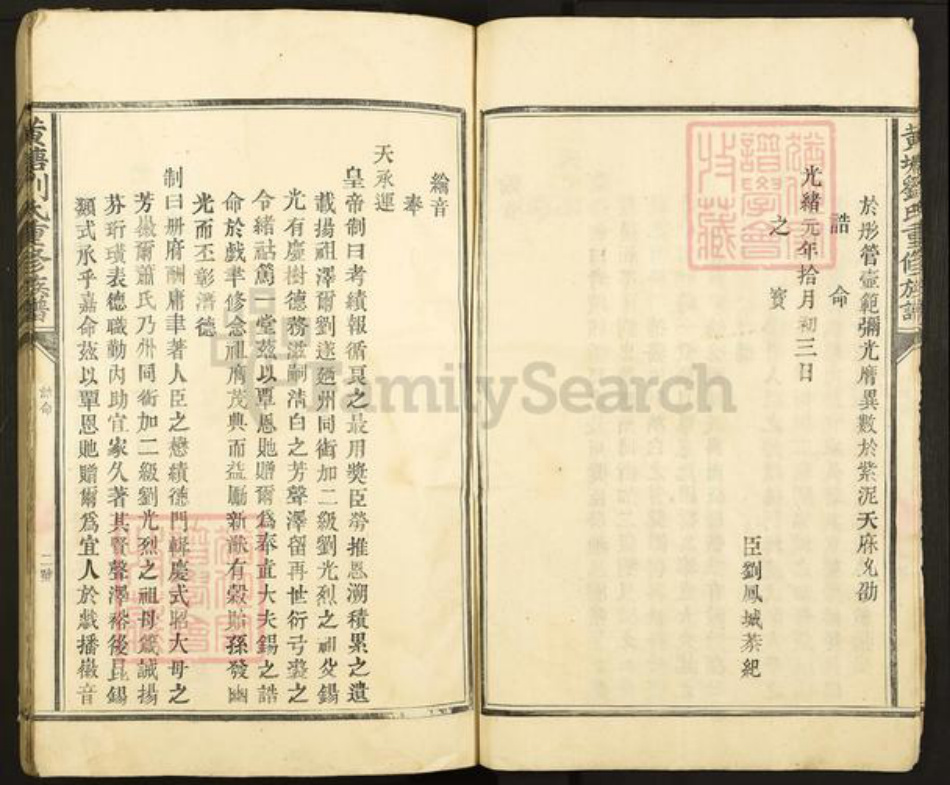 黃塘劉氏重修族譜
於彤管壼範彌光膺異數於紫泥天庥允劭
誥命
之寶
光緒元年拾月初三日
臣劉鳳城恭紀
綸音
奉
天承運
皇帝制曰考績報循良之最用獎臣勞推恩溯積累之遺
載揚祖澤爾劉遂廼州同銜加二級劉光烈之祖父錫
光有慶樹德務滋嗣清白之芳聲澤留再世衍弓裘之
令緒祜篤一堂茲以覃恩貤贈爾為奉直大夫錫之誥
命於戲聿修念祖膺茂典而益勵新猷有穀貽孫發幽
光而丕彰潛德
制曰冊府酬庸聿著人臣之懋績德門輯慶式昭大母之
芳徽爾蕭氏乃州同銜加二級劉光烈之祖母箴誡揚
芬珩璜表德職勤內助宜家久著其賢聲澤裕後昆錫
類式承乎嘉命茲以覃恩貤贈爾為宜人於戲播徽音
黃塘劉氏重修族譜
誥命
二
FamilySearch